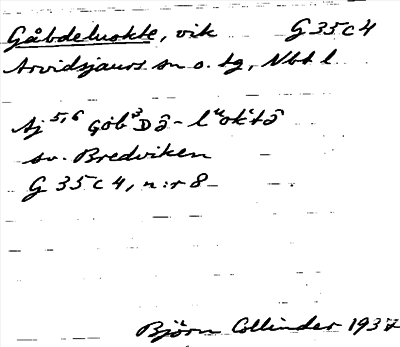 Gåbdeluokte, vik G 35 c 4
Arvidsjaurs sn o. tg, Nbt l.
Aj 5,6 Gob³Də̂-lᵘok‘tə̂
sv. Bredviken
G 35 c 4, n:r 8
Björn Collinder 1937